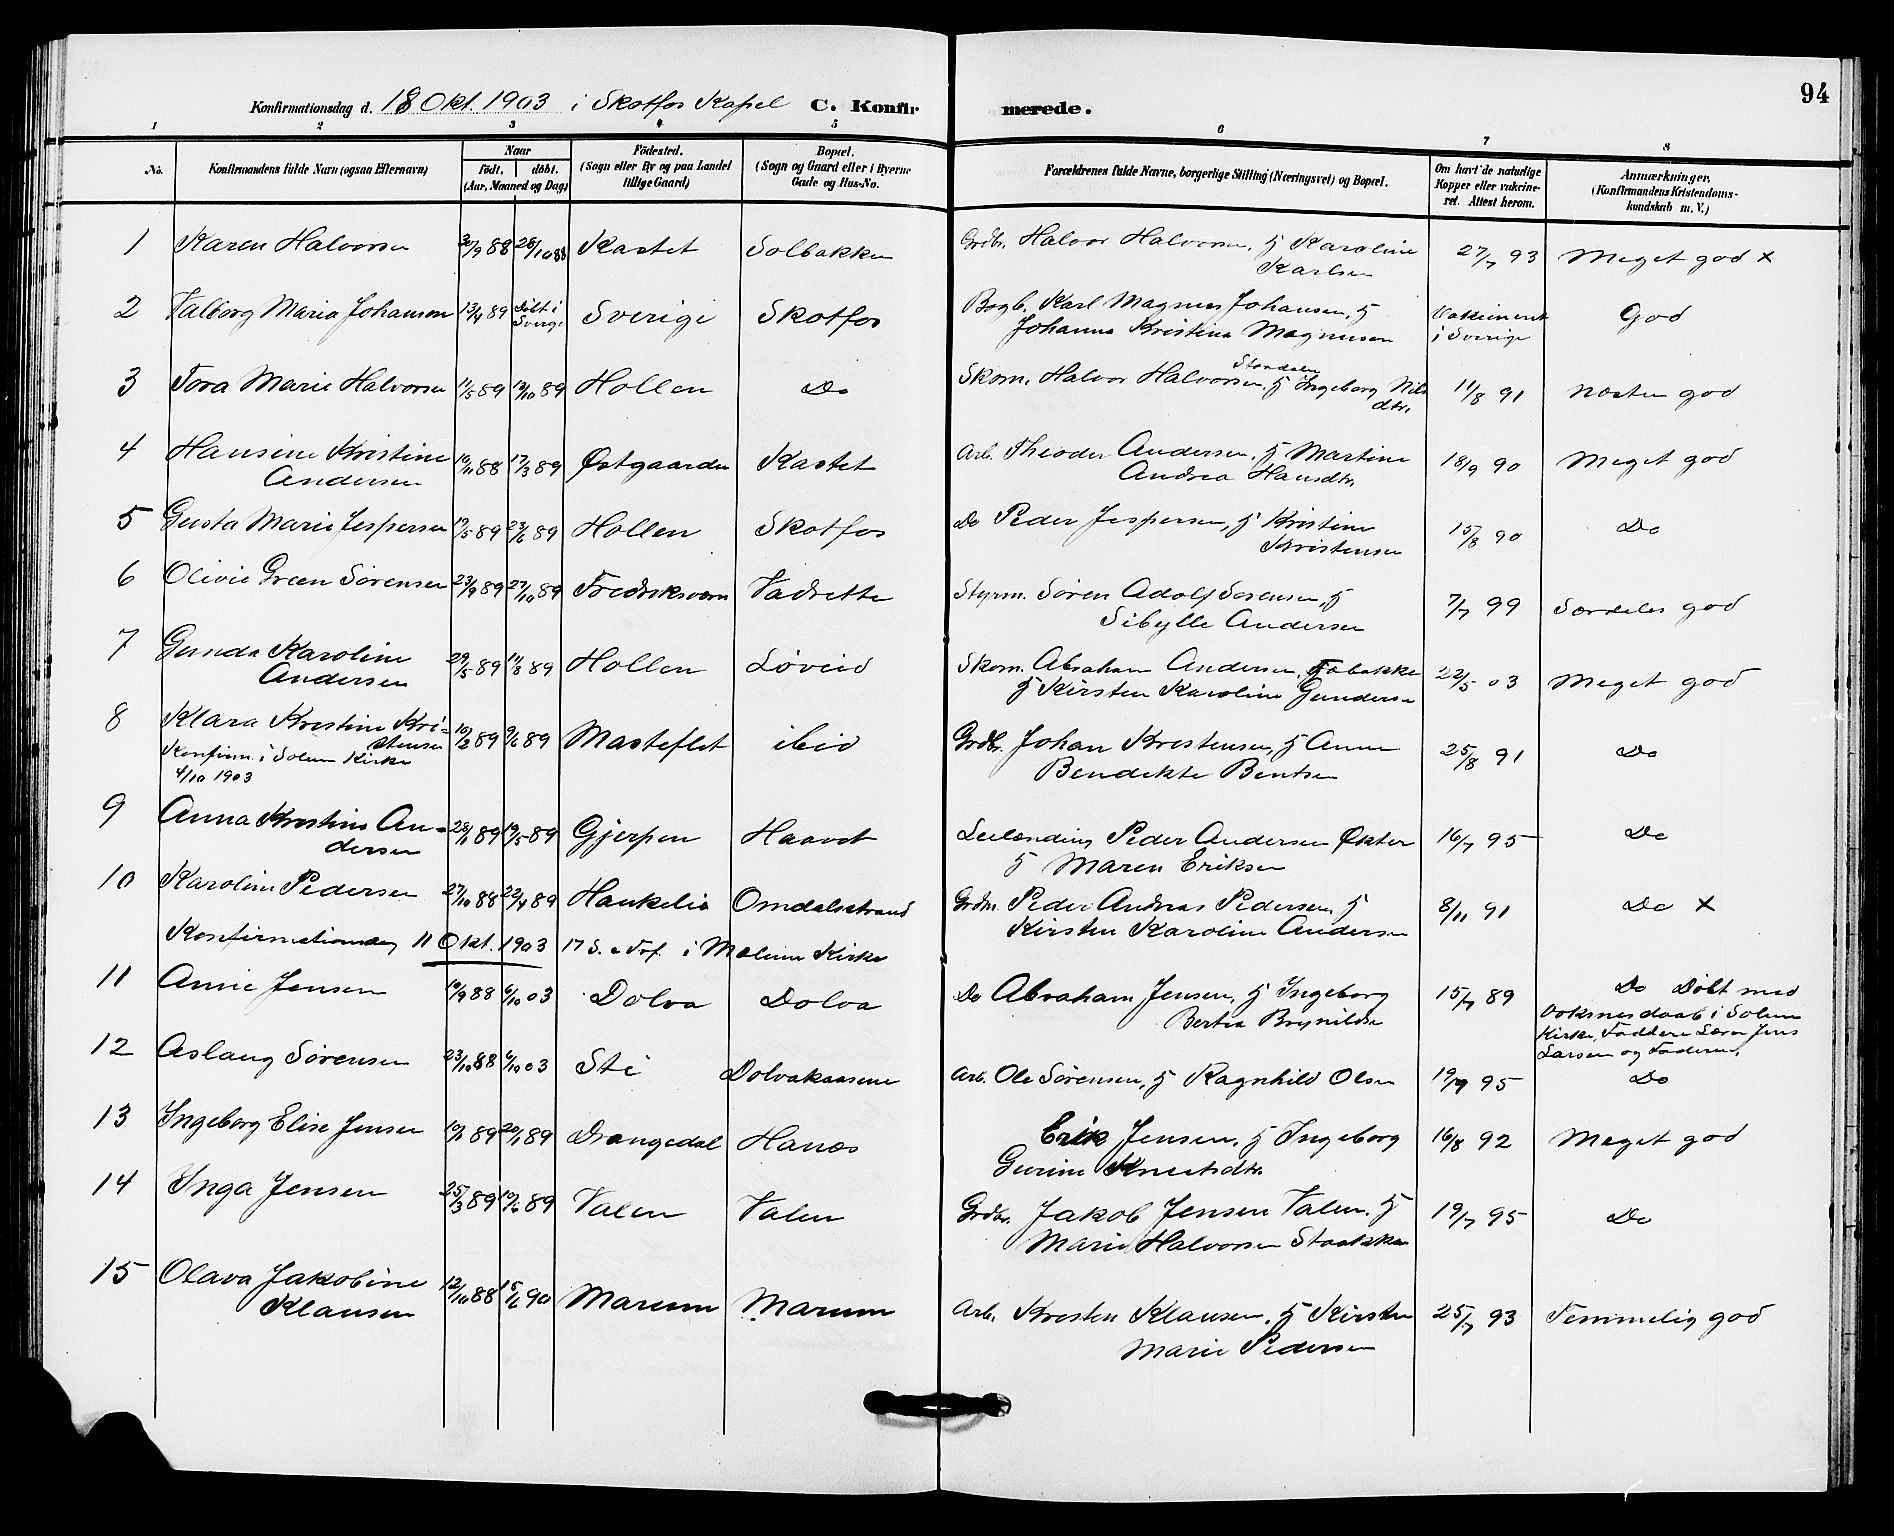 94
Konfirmationsdag d. 18 Okt. 1903 i Skotfos Kapel C. Konfir merede.
1 2 3 4 5 6 7 8
No. Konfirmandens fulde Navn (ogsaa Efternavn) Naar født. døbt. (Aar, Maaned og Dag) Fødested. (Sogn eller By og paa Landet tillige Gaard) Bopæl. (Sogn og Gaard eller i Byerne Gade og Hus-No. Forældrenes fulde Navne, borgerlige Stilling (Næringsvei) og Bopæl. Om havt de naturlige Kopper eller vakcineret. Attest herom. Anmærkninger. (Konfirmandens Kristendomskundskab m. V.)
1 Karen Halvorsen 30/9 88 28/10 88 Kastet Solbakken Grdbr. Halvor Halvorsen, H Karoline 27/7 93 Meget god x
Karlsen
2 Valborg Maria Johanson 13/4 89 Døbt i Sverige Sverige Skotfos Bogb. Karl Magnus Johansen, H Vakcineret God
Johanna Kristina Magnusen i Sverige
3 Tora Marie Halvorsen 11/5 89 13/10 89 Hollen Do Skom. Halvor Halvorsen, H Ingeborg Nils 11/8 91 Næsten god
dtr.
4 Hansine Kristine 10/11 88 17/3 89 Østgaarden Kastet Arb. Theodor Andersen, H Martine 18/9 90 Meget god
Andersen Andrea Hansdtr.
5 Gusta Marie Jespersen 17/5 89 23/6 89 Hollen Skotfos Do Peder Jespersen, H Kristine 15/8 90 Do
Kristensen
6 Olivie Green Sørensen 23/9 89 27/10 89 Fredriksværn Vadrette Styrm. Søren Adolf Sørensen, H 7/7 99 Særdeles god
Sibylle Andersen
7 Gunda Karoline 29/5 89 11/8 89 Hollen Løveid Skom. Abraham Andersen, 22/5 03 Meget god
Andersen H Kirsten Karoline Gundersen
8 Klara Kristine Kri- 10/2 89 9/6 89 Masteflet ibid Grdbr. Johan Kristensen, H Anne 25/8 91 Do
stensen Bendikte Bentsen
Konfirm. i Solum Kirke
4/10 1903
9 Anna Kristine An- 28/1 89 19/5 89 Gjerpen Haavet Leilænding Peder Andersen Økter 16/7 95 Do
dersen H Maren Eriksen
10 Karoline Pedersen 27/10 88 22/4 89 Haukelia Omdalsstrand Grdm. Peder Andreas Pedersen, H 8/11 91 Do x
Kirsten Karoline Andersen
Konfirmationsdag 11 Okt. 1903 17 S. e Tref. i Melum Kirke
11 Anne Jensen 10/9 88 6/10 03 Dolva Dolva Do Abraham Jensen, H Ingeborg 15/7 89 Do Døbt med
Bertea Brynildsen Voksnesdaab i Solum
Kirke, Faddere Lærer Jens
Larsen og Faderen.
12 Aslaug Sørensen 23/10 88 6/10 03 Sti Dolvakaasene Arb. Ole Sørensen, H Ragnhild Olsen 19/9 95 Do
13 Ingeborg Elise Jensen 10/1 89 20/1 89 Drangedal Hanæs Erik Jensen, H Ingeborg 16/8 92 Meget god
Gurine Knutsdtr.
14 Inga Jensen 25/3 89 10/6 89 Valen Valen Grdbr. Jakob Jensen Valen, H 19/7 95 Do
Marie Halvorsen Staakken
15 Olava Jakobine 12/10 88 15/6 90 Marum Marum Arb. Kristen Klausen, H Kirsten 25/7 93 Temmelig god
Klausen Marie Pedersen